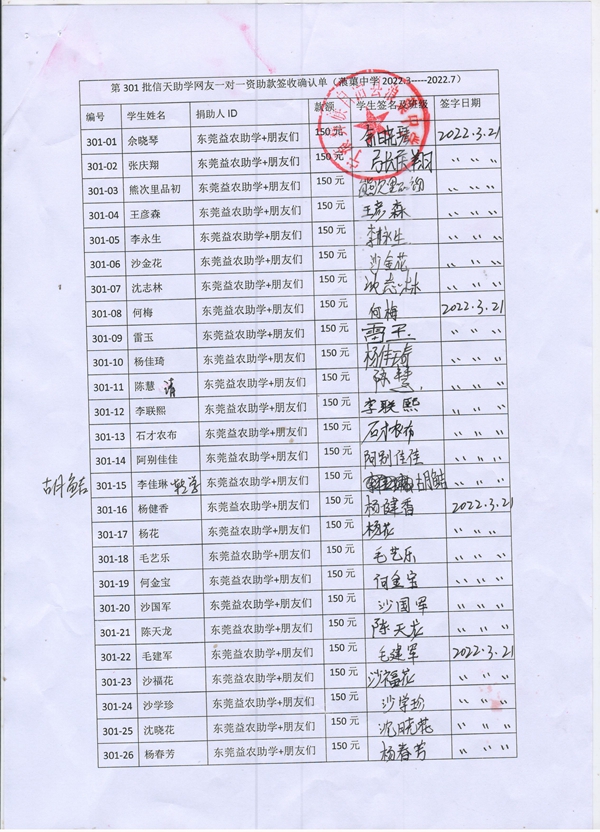 第 301 批信天助学网友一对一资助款签收确认单（蒗蕖中学 2022.3-----2022.7）
编号 学生姓名 捐助人 ID 款额 学生签名及班级 签字日期
301-01 余晓琴 东莞益农助学+朋友们 150 元 余晓琴 2022.3.21
301-02 张庆翔 东莞益农助学+朋友们 150 元 〃 〃 〃
301-03 熊次里品初 东莞益农助学+朋友们 150 元 熊次里品初 〃 〃 〃
301-04 王彦森 东莞益农助学+朋友们 150 元 王彦森 〃 〃 〃
301-05 李永生 东莞益农助学+朋友们 150 元 李永生 〃 〃 〃
301-06 沙金花 东莞益农助学+朋友们 150 元 沙金花 〃 〃 〃
301-07 沈志林 东莞益农助学+朋友们 150 元 沈志林 〃 〃 〃
301-08 何梅 东莞益农助学+朋友们 150 元 何梅 2022.3.21
301-09 雷玉 东莞益农助学+朋友们 150 元 雷玉 〃 〃 〃
301-10 杨佳琦 东莞益农助学+朋友们 150 元 杨佳琦 〃 〃 〃
301-11 陈慧 清 东莞益农助学+朋友们 150 元 陈慧 〃 〃 〃
301-12 李联熙 东莞益农助学+朋友们 150 元 李联熙 〃 〃 〃
301-13 石才农布 东莞益农助学+朋友们 150 元 石才农布 〃 〃 〃
301-14 阿别佳佳 东莞益农助学+朋友们 150 元 阿别佳佳 〃 〃 〃
胡鲒 301-15 李佳琳 转学 东莞益农助学+朋友们 150 元 胡鲒 〃 〃 〃
301-16 杨健香 东莞益农助学+朋友们 150 元 杨健香 2022.3.21
301-17 杨花 东莞益农助学+朋友们 150 元 杨花 〃 〃 〃
301-18 毛艺乐 东莞益农助学+朋友们 150 元 毛艺乐 〃 〃 〃
301-19 何金宝 东莞益农助学+朋友们 150 元 何金宝 〃 〃 〃
301-20 沙国军 东莞益农助学+朋友们 150 元 沙国军 〃 〃 〃
301-21 陈天龙 东莞益农助学+朋友们 150 元 陈天龙 〃 〃 〃
301-22 毛建军 东莞益农助学+朋友们 150 元 毛建军 2022.3.21
301-23 沙福花 东莞益农助学+朋友们 150 元 沙福花 〃 〃 〃
301-24 沙学珍 东莞益农助学+朋友们 150 元 沙学珍 〃 〃 〃
301-25 沈晓花 东莞益农助学+朋友们 150 元 沈晓花 〃 〃 〃
301-26 杨春芳 东莞益农助学+朋友们 150 元 杨春芳 〃 〃 〃